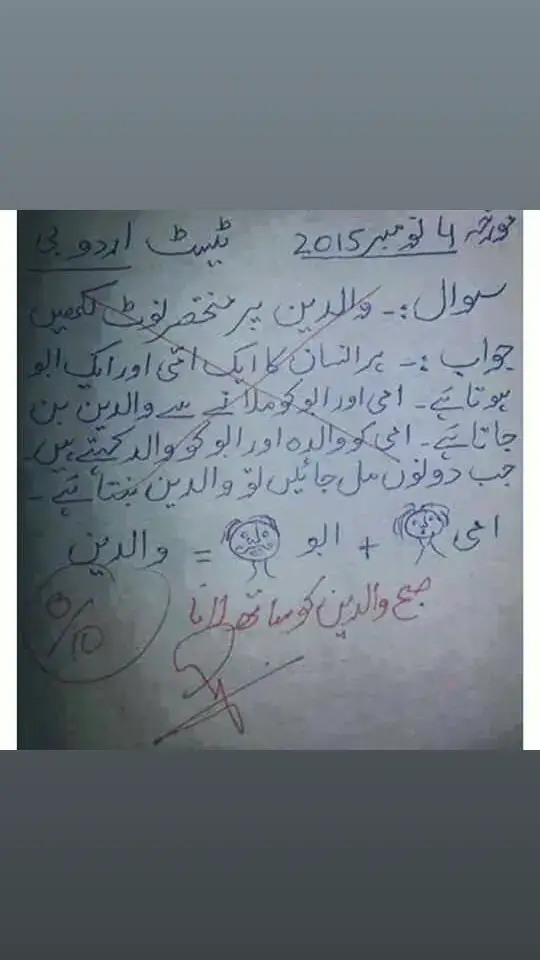 مورخہ 4 نومبر 2015 ٹیسٹ اردو بی
سوال :- والدین پر مختصر نوٹ لکھیں
جواب :- ہر انسان کا ایک امی اور ایک ابو
ہوتا ہے ۔ امی اور ابو کو ملانے سے والدین بن
جاتا ہے ۔ امی کو والدہ اور ابو کو والد کہتے ہیں ۔
جب دونوں مل جائیں تو والدین بنتا ہے ۔
امی + ابو = والدین
صبح والدین کو ساتھ لانا
0/10